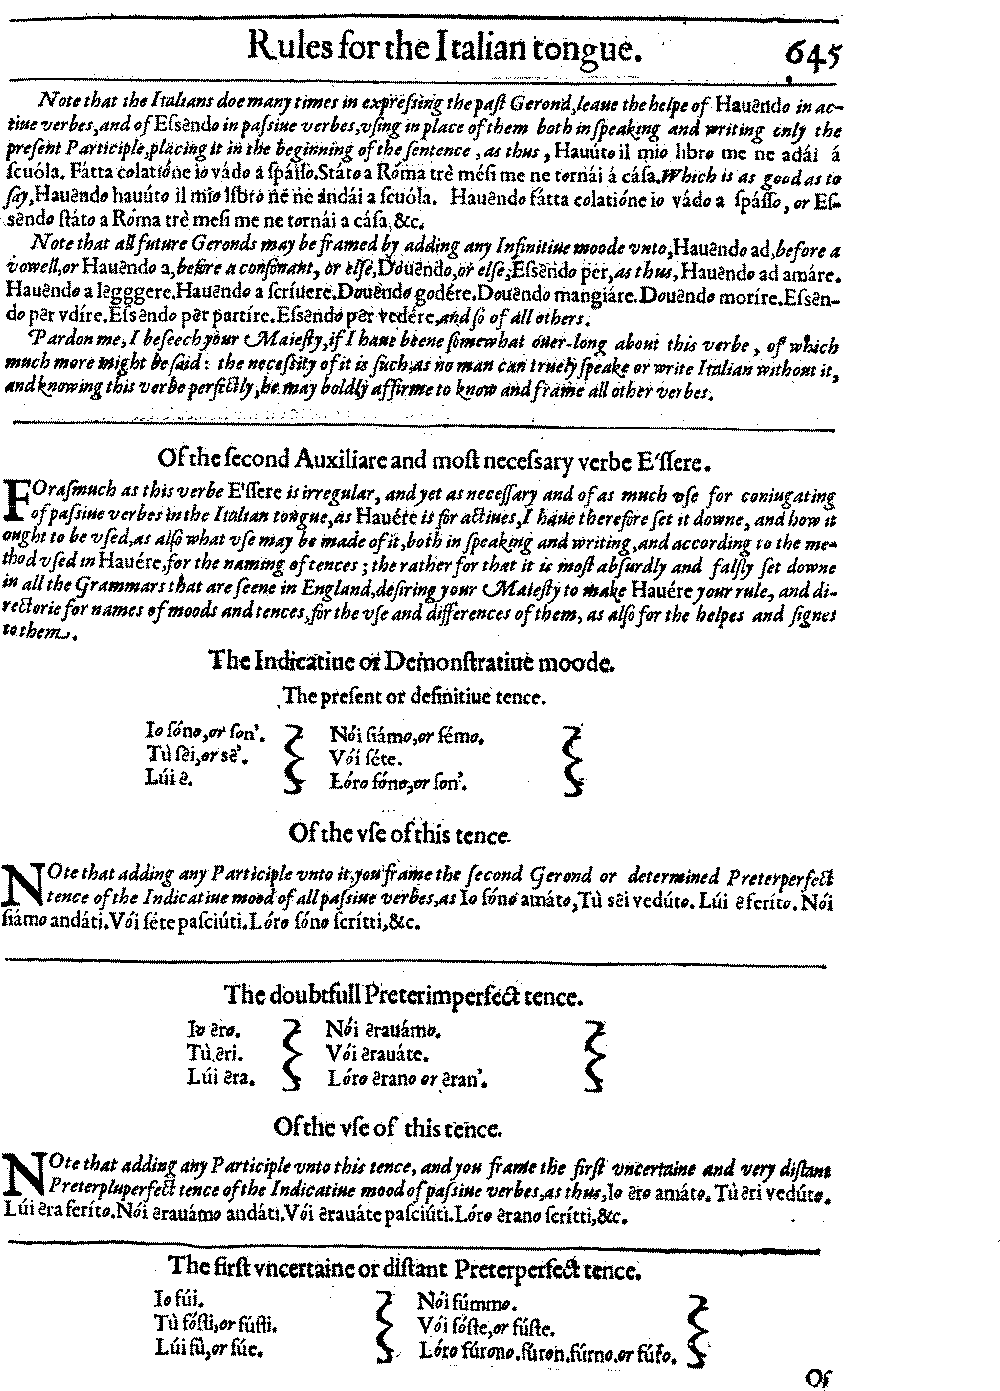 Rules for the Italian tongue. 645
Note that the Italians doe many times in expreſſing the paſt Gerond, leaue the helpe of Hauēndo in ac-
tiue verbes, and of Eſsēndo in paſsiue verbes, vſing in place of them both in ſpeaking and writing only the
preſent Participle, placing it in the beginning of the ſentence, as thus, Hauúto il mio libro me ne adái á
ſcuóla. Fátta colatióne io vádo á ſpáſſo. Státo a Róma trè méſi me ne tornái á cáſa. Which is as good as to
ſay, Hauēndo hauúto il mio libro ne ne ándái a ſcuóla. Hauēndo fátta colatióne io vádo a ſpáſſo, or Eſ-
sēndo ſtáto a Róma trè meſi me ne tornái a cáſa, &c.
Note that all future Geronds may be framed by adding any Infinitiue moode vnto, Hauēndo ad, before a
vowell, or Hauēndo a, before a conſonant, or elſe, Douēndo, or elſe, Eſsēndo per, as thus, Hauēndo ad amáre.
Hauēndo a legggere. Hauēndo a ſcríuere. Douēndo godére. Douēndo mangiáre. Douēndo moríre. Eſsēn-
do pēr vdíre. Eſsēndo pēr partíre. Eſsēndo pēr vedére, and ſo of all others.
Pardon me, I beſeech your Maieſty, if I haue beene ſomewhat ouer-long about this verbe, of which
much more might be ſaid: the neceſſity of it is ſuch, as no man can truely ſpeake or write Italian without it,
and knowing this verbe perfectly, he may boldly affirme to know and frame all other verbes.
Of the ſecond Auxiliare and moſt neceſsary verbe E'ſſere.
FOraſmuch as this verbe E'ſſere is irregular, and yet as neceſſary and of as much vſe for coniugating
of paſsiue verbes in the Italian tongue, as Hauére is for actiues, I haue therefore ſet it downe, and how it
ought to be vſed, as alſo what vſe may be made of it, both in ſpeaking and writing, and according to the me-
thod vſed in Hauére, for the naming of tences; the rather for that it is moſt abſurdly and falſly ſet downe
in all the Grammars that are ſeene in England, deſiring your Maieſty to make Hauére your rule, and di-
rectorie for names of moods and tences, for the vſe and differences of them, as alſo for the helpes and ſignes
to them.
The Indicatiue or Demonſtratiue moode.
The preſent or definitiue tence.
Io ſóno, or ſon'. Nói ſiámo, or ſémo.
Tù ſēi, or sē'. Vói ſéte.
Lúi ē. Lóro ſóno, or ſon'.
Of the vſe of this tence.
NOte that adding any Participle vnto it, you frame the ſecond Gerond or determined Preterperfect
tence of the Indicatiue mood of all paſsiue verbes, as Io ſóno amáto, Tù sēi vedúto. Lúi ē feríto. Nói
ſiámo andáti. Vói ſéte paſciúti. Lóro ſóno ſcrítti, &c.
The doubtfull Preterimperfect tence.
Io ēro. Nói ērauámo.
Tù ēri. Vói ērauáte.
Lúi ēra. Lóro ērano or ēran'.
Of the vſe of this tence.
NOte that adding any Participle vnto this tence, and you frame the firſt vncertaine and very diſtant
Preterpluperfect tence of the Indicatiue mood of paſsiue verbes, as thus, Io ēro amáto. Tù ēri vedúto.
Lúi ēra feríto. Nói ērauámo andáti. Vói ērauáte paſciúti. Lóro ērano ſcrítti, &c.
The firſt vncertaine or diſtant Preterperfect tence.
Io fúi. Nói fúmmo.
Tù fóſti, or fúſti. Vói fóſte, or fúſte.
Lúi fù, or fúe. Lóro fúrono. fúron. fúrno, or fúro.
Of